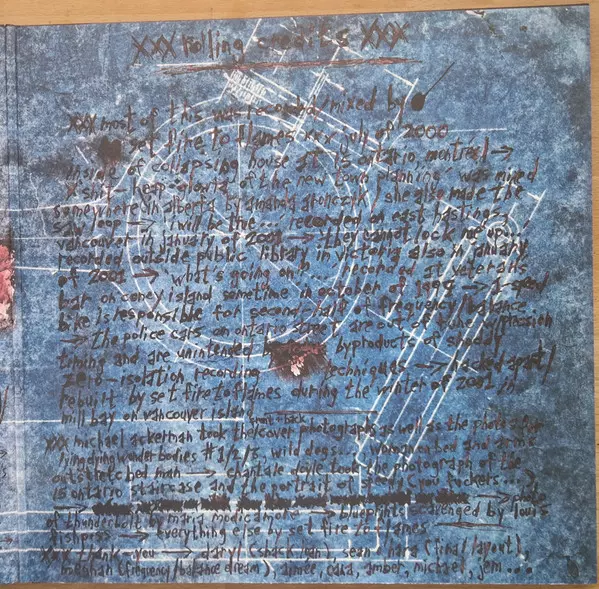 xxx rolling credits xxx
xxx most of this was recorded/mixed by
set fire to flames xxx july of 2000
inside of collapsing house at 15 ontario, montreal →
'shit-heap-gloria of the new town planning' was mixed
somewhere in alberta by amanda aronczyk she also made the
saw loop → 'i will be true...' recorded on east hastings,
vancouver in january of 2001 → 'they cannot lock me up...'
recorded outside public library in victoria also in january
of 2001 → 'what's going on?'... recorded at veterans
bar on coney island sometime in october of 1999 → 2-speed
bike is responsible for second-half of frequency/balance
→ the police cars on ontario street are out of tune/precision
timing and are unintended byproducts of shoddy
zero-isolation recording techniques → hacked apart/
rebuilt by set fire to flames during the winter of 2001 in
mill bay on vancouver island
front + back
xxx michael ackerman took the cover photographs as well as the photos for
lying dying wonder bodies #1/2/3, wild dogs... woman on bed and arms
outstretched man → chantale doyle took the photograph of the
15 ontario staircase and the portrait of speedy (you fuckers...)
→ photo
of thunderbolt by maria modicamore → blueprints scavenged by louis
fishpiss → everything else by set fire to flames
xxx thank-you → daryl (shack, van), sean o'hara (final layout),
meghan (frequency/balance dream), aimee, cana, amber, michael, jem...